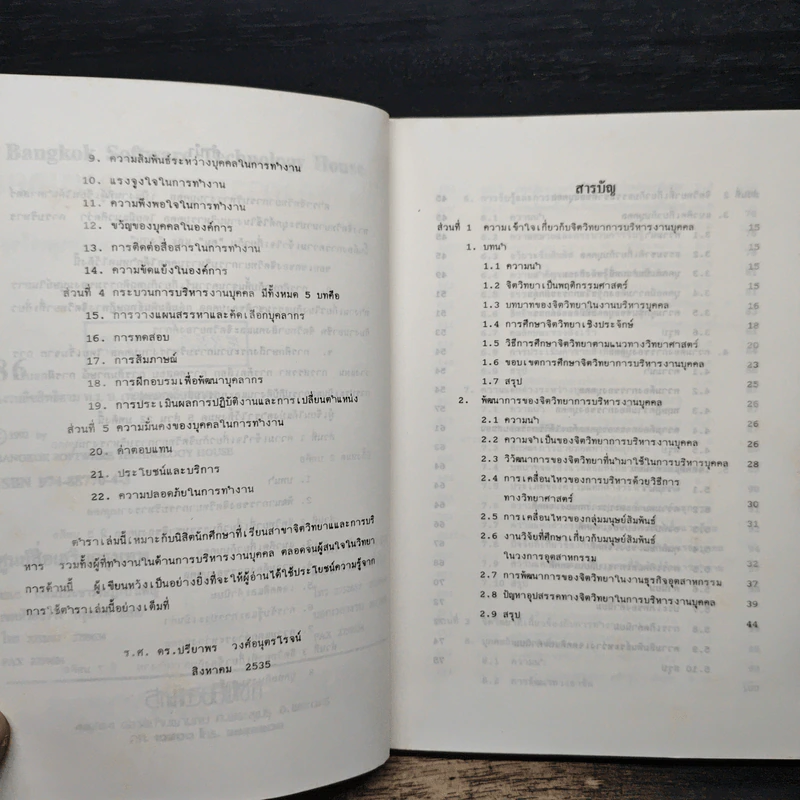 9. ความสัมพันธ์ระหว่างบุคคลในการทำงาน
10. แรงจูงใจในการทำงาน
11. ความพึงพอใจในการทำงาน
12. ขวัญของบุคคลในองค์การ
13. การติดต่อสื่อสารในการทำงาน
14. ความขัดแย้งในองค์การ
ส่วนที่ 4 กระบวนการบริหารงานบุคคล มีทั้งหมด 5 บทคือ
15. การวางแผนสรรหาและคัดเลือกบุคลากร
16. การทดสอบ
17. การสัมภาษณ์
18. การฝึกอบรมเพื่อพัฒนาบุคลากร
19. การประเมินผลการปฏิบัติงานและการเปลี่ยนตำแหน่ง
ส่วนที่ 5 ความมั่นคงของบุคคลในการทำงาน
20. ค่าตอบแทน
21. ประโยชน์และบริการ
22. ความปลอดภัยในการทำงาน
ตำราเล่มนี้เหมาะกับนิสิตนักศึกษาที่เรียนสาขาจิตวิทยาและการบริ
หาร รวมทั้งผู้ที่ทำงานในด้านการบริหารงานบุคคล ตลอดจนผู้สนใจในวิทยา
การด้านนี้ ผู้เขียนหวังเป็นอย่างยิ่งที่จะให้ผู้อ่านได้ใช้ประโยชน์ความรู้จาก
การใช้ตำราเล่มนี้อย่างเต็มที่
ร.ศ. ดร.ปรียาพร วงศ์อนุตรโรจน์
สิงหาคม 2535
สารบัญ
ส่วนที่ 1 ความเข้าใจเกี่ยวกับจิตวิทยาการบริหารงานบุคคล 15
1. บทนำ 15
1.1 ความนำ 15
1.2 จิตวิทยาเป็นพฤติกรรมศาสตร์ 15
1.3 บทบาทของจิตวิทยาในงานบริหารบุคคล 16
1.4 การศึกษาจิตวิทยาเชิงประจักษ์ 18
1.5 วิธีการศึกษาจิตวิทยาตามแนวทางวิทยาศาสตร์ 20
1.6 ขอบเขตการศึกษาจิตวิทยาการบริหารงานบุคคล 23
1.7 สรุป 25
2. พัฒนาการของจิตวิทยาการบริหารงานบุคคล 26
2.1 ความนำ 26
2.2 ความจำเป็นของจิตวิทยาการบริหารงานบุคคล 26
2.3 วิวัฒนาการของจิตวิทยาที่นำมาใช้ในการบริหารบุคคล 28
2.4 การเคลื่อนไหวของการบริหารด้วยวิธีการ
ทางวิทยาศาสตร์ 30
2.5 การเคลื่อนไหวของกลุ่มมนุษย์สัมพันธ์ 31
2.6 งานวิจัยที่ศึกษาเกี่ยวกับมนุษย์สัมพันธ์
ในวงการอุตสาหกรรม
2.7 การพัฒนาการของจิตวิทยาในงานธุรกิจอุตสาหกรรม 37
2.8 ปัญหาอุปสรรคทางจิตวิทยาในการบริหารงานบุคคล 39
2.9 สรุป 44